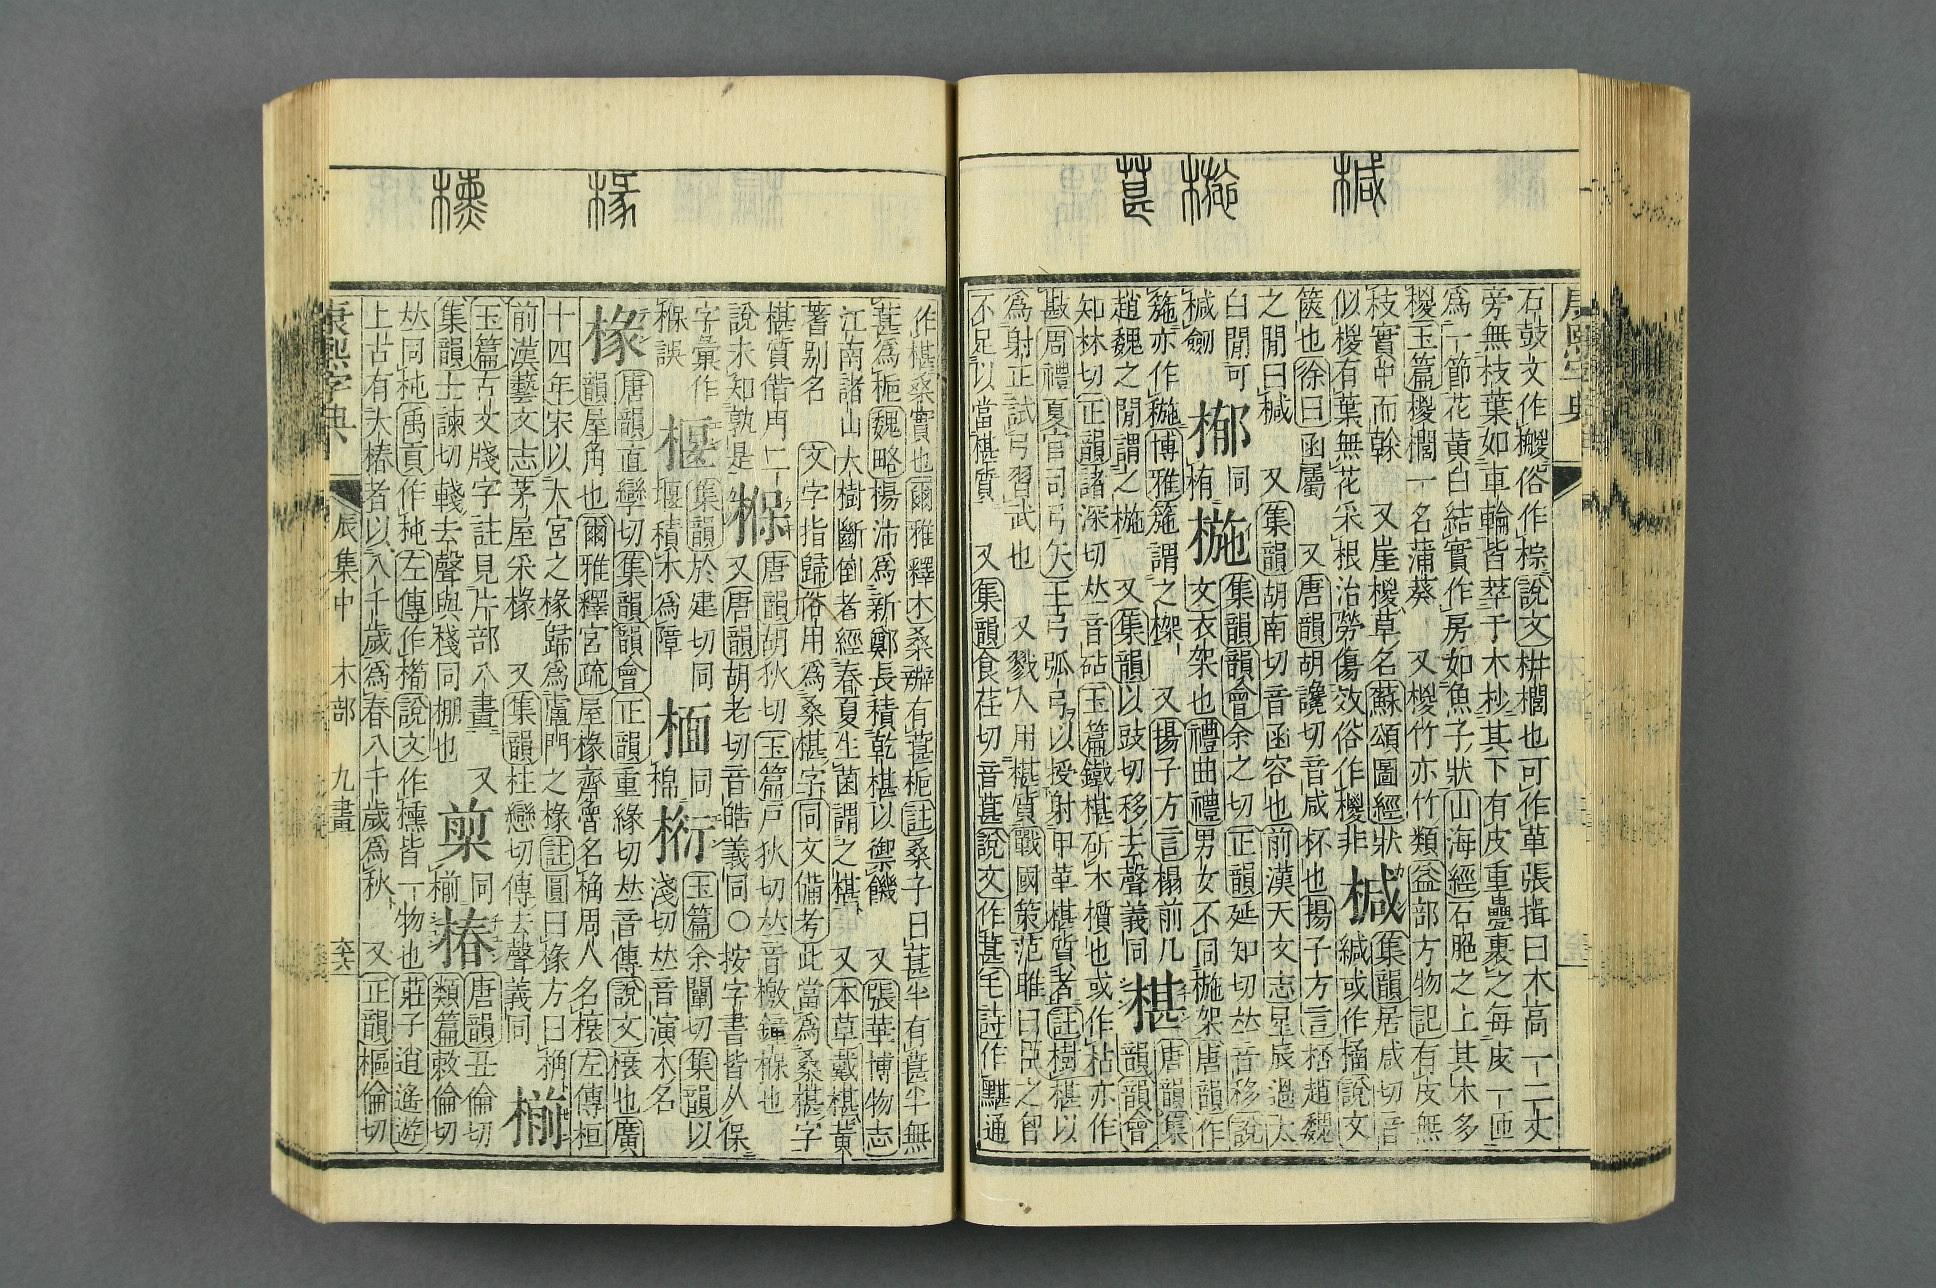 康熙字典
石鼓文作㮨俗作棕說文栟櫚也可作萆張揖曰木高一二丈
旁無枝葉如車輪皆萃于木杪其下有皮重疊裹之每皮一匝
為一節花黃白結實作房如魚子狀山海經石脃之上其木多
椶玉篇椶櫚一名蒲葵 又椶竹亦竹類益部方物記有皮無
枝實中而榦 又崖椶草名蘇頌圖經狀
似椶有葉無花采根治勞傷效俗作㯶非
椷
集韻居咸切音
緘或作㯺說文
篋也徐曰函屬 又唐韻胡讒切音咸杯也揚子方言㮎趙魏
之閒曰椷 又集韻胡南切音函容也前漢天文志星辰過太
白閒可
椷劒
㮋
同
栯
椸
集韻韻會余之切正韻延知切𠀤音移說
文衣架也禮曲禮男女不同椸架唐韻作
箷亦作博雅箷謂之枷 又揚子方言榻前几
趙魏之閒謂之椸 又集韻以豉切移去聲義同
椹
唐韻集
韻韻會
知林切正韻諸深切𠀤音砧玉篇鐵椹斫木櫍也或作枮亦作
㪣周禮夏官司弓矢王弓弧弓以授射甲革椹質者註樹椹以
為射正試弓習武也 又戮人用椹質戰國策范睢曰臣之胷
不足以當椹質 又集韻食荏切音葚說文作葚毛詩作黮通
作椹桑實也爾雅釋木桑辨有葚梔註桑子曰葚半有葚半無
葚為梔魏略楊沛為新鄭長積乾椹以禦饑 又張華博物志
江南諸山大樹斷倒者經春夏生菌謂之椹 又本草戴椹黃
蓍別名 文字指歸俗用為桑椹字同文備考此當為桑椹字
椹質借用二
說未知孰是
椺
唐韻胡狄切玉篇戸狄切𠀤音檄鍾椺也
又唐韻胡老切音皓義同○按字書皆从保
字彙作
椺誤
椻
集韻於建切同
堰積木為障
㮌
同
棉
椼
玉篇余闡切集韻以
淺切𠀤音演木名
椽
唐韻直攣切集韻韻會正韻重緣切𠀤音傳說文榱也廣
韻屋角也爾雅釋宮疏屋椽齊魯名桷周人名榱左傳桓
十四年宋以大宮之椽歸為盧門之椽註圓曰椽方曰桷
前漢藝文志茅屋采椽 又集韻柱戀切傳去聲義同
椾
玉篇古文牋字註見片部八畫 又
集韻士諫切輚去聲與棧同棚也
㮍
同
椾
椿
唐韻丑倫切
類篇敕倫切
𠀤同杶禹貢作杶左傳作橁說文作櫄皆一物也莊子逍遙遊
上古有大椿者以八千歲為春八千歲為秋 又正韻樞倫切
康熙字典 辰集中 木部 九畫